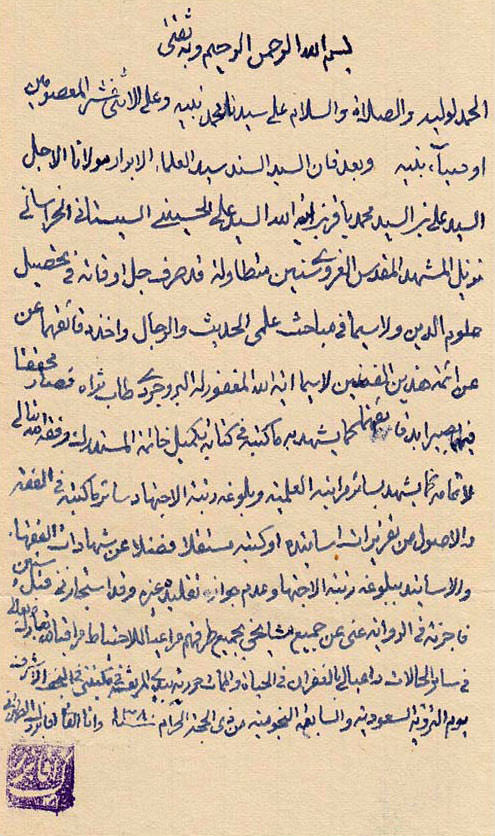 بسم الله الرحمن الرحيم وبه ثقتي
الحمد لوليه والصلاة والسلام على سيدنا محمد نبيه وعلى الاثنى عشر المعصومين
اوصياء نبيه وبعد فان السيد السند سيد العلماء الابرار مولانا الاجل
السيد على بن السيد محمد باقر بن السيد على الحسيني السيستاني الخراساني
نزيل المشهد المقدس الغروي سنين متطاولة قد صرف جل اوقاته في تحصيل
علوم الدين ولا سيما في مباحث علمى الحديث والرجال واخذ دقائقهما عن
عن ائمة هذين الفنين لا سيما اية الله المغفور له البروجردي طاب ثراه فصار محققا
فيهما بصيرا بدقائقهما كما يشهد به ما كتبه في كتابة تكميل خاتمة المستدرك وفقه الله تعالى
لاتمامه كما يشهد بسائر مراتبه العلمية وبلوغه رتبة الاجتهاد سائر ما كتبه في الفقه
والاصول من تقريرات اساتيذه او كتبه مستقلا فضلا عن شهادات الفقهاء
والاساتيذ ببلوغه رتبة الاجتهاد وعدم جواز تقليده غيره وقد استجازني قبل سنين
فاجزته في الرواية عنى عن جميع مشايخي بجميع طرقهم مراعيا للاحتياط مراقبا لله تعالى
في سائر الحالات داعيا لي بالغفران في الحياة والممات حررته بيدي المرتعشة في مكتبتي في النجف الاشرف
يوم التروية السعودية والسابعة النجومية من ذى الحجة الحرام ١٣٨٠ وانا الفاني اقا بزرك الطهراني